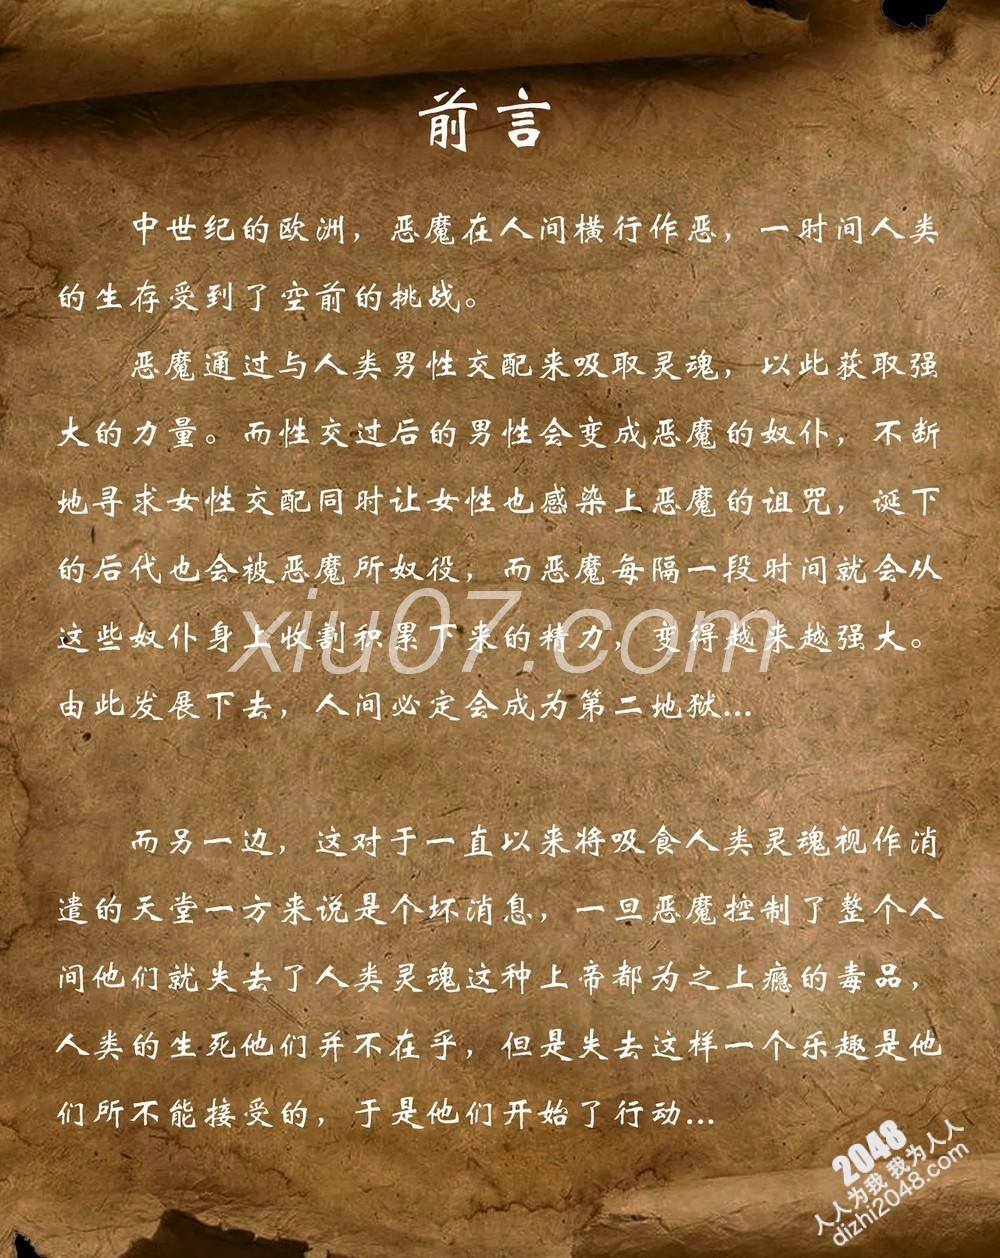 前言
中世纪的欧洲，恶魔在人间横行作恶，一时间人类
的生存受到了空前的挑战。
恶魔通过与人类男性交配来吸取灵魂，以此获取强
大的力量。而性交过后的男性会变成恶魔的奴仆，不断
地寻求女性交配同时让女性也感染上恶魔的诅咒，诞下
的后代也会被恶魔所奴役，而恶魔每隔一段时间就会从
这些奴仆身上收割积累下来的精力，变得越来越强大。
xiu07.com
由此发展下去，人间必定会成为第二地狱...
而另一边，这对于一直以来将吸食人类灵魂视作消
遣的天堂一方来说是个坏消息，一旦恶魔控制了整个人
间他们就失去了人类灵魂这种上帝都为之上瘾的毒品，
人类的生死他们并不在乎，但是失去这样一个乐趣是他
们所不能接受的，于是他们开始了行动...
2048
人人为我 我为人人
dizhi2048.com